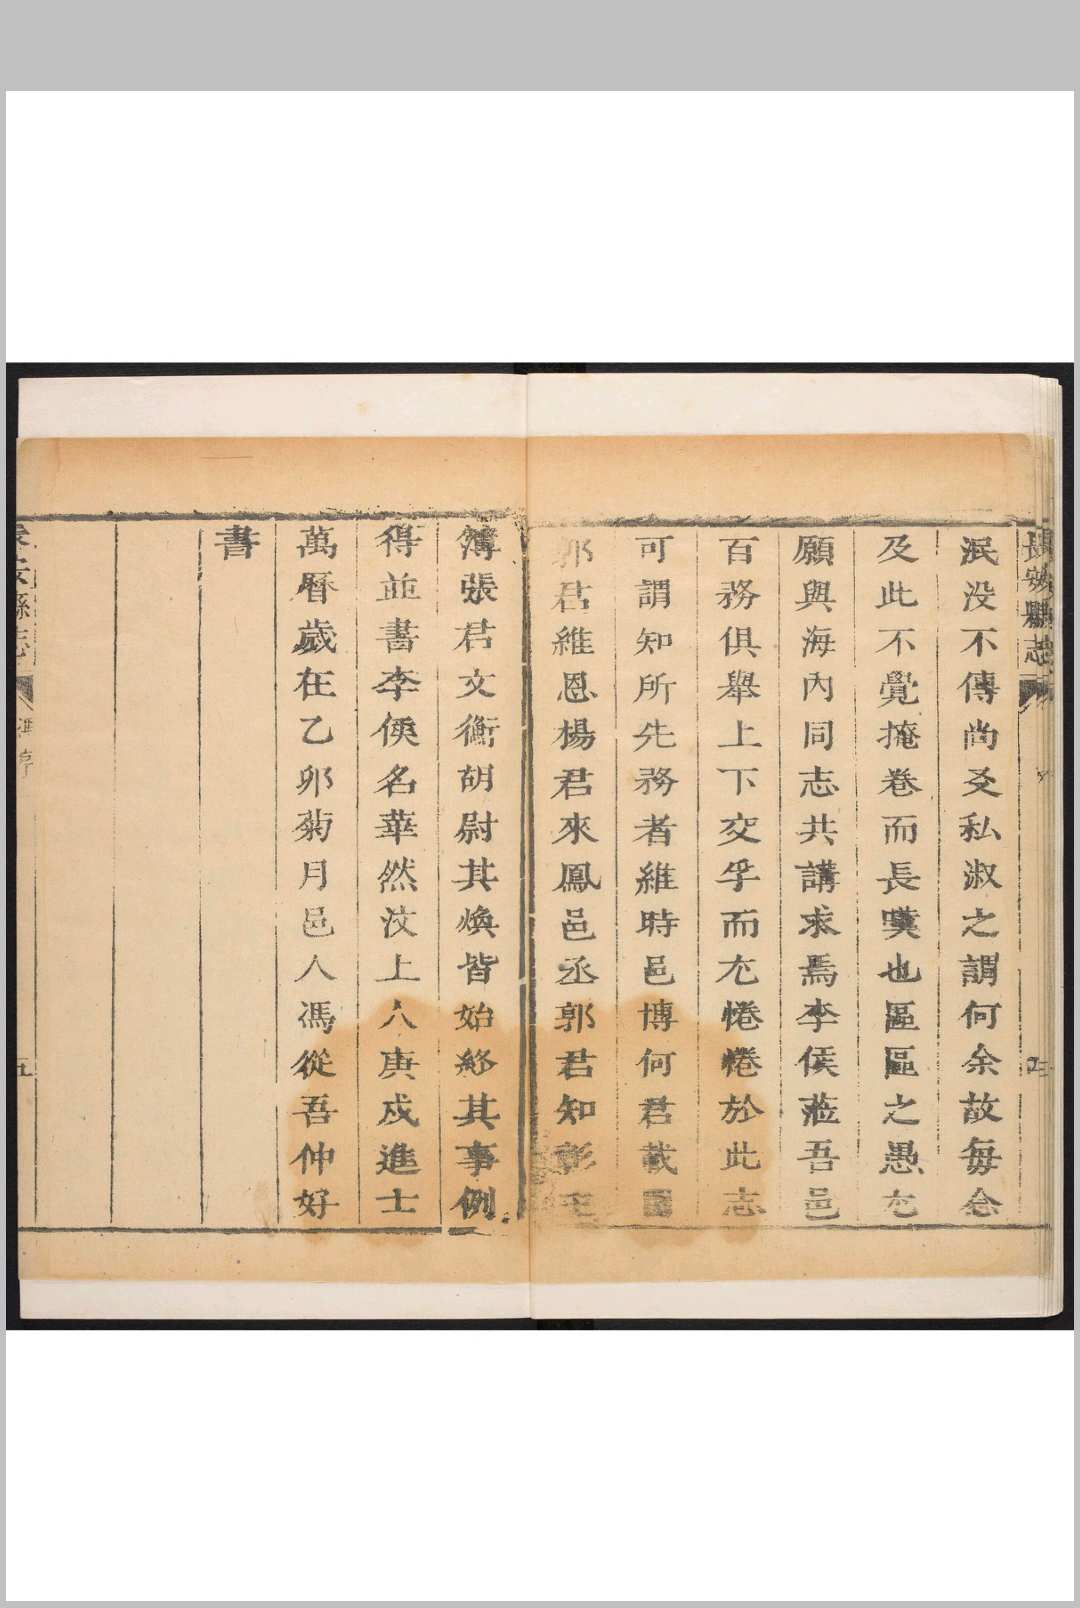 長安縣志
泯没不傳尚友私淑之謂何余故每念
及此不覺掩卷而長嘆也區區之愚尤
願與海内同志共講求焉李侯蒞吾邑
百務俱舉上下交孚而尤惓惓於此志
可謂知所先務者維時邑博何君載圖
郭君維恩楊君來鳳邑丞郭君知彰王
簿張君文衡胡尉其煥皆始終其事例
得並書李侯名華然汶上人庚戍進士
萬曆歲在乙卯菊月邑人馮從吾仲好
書
長安縣志
馮序
五